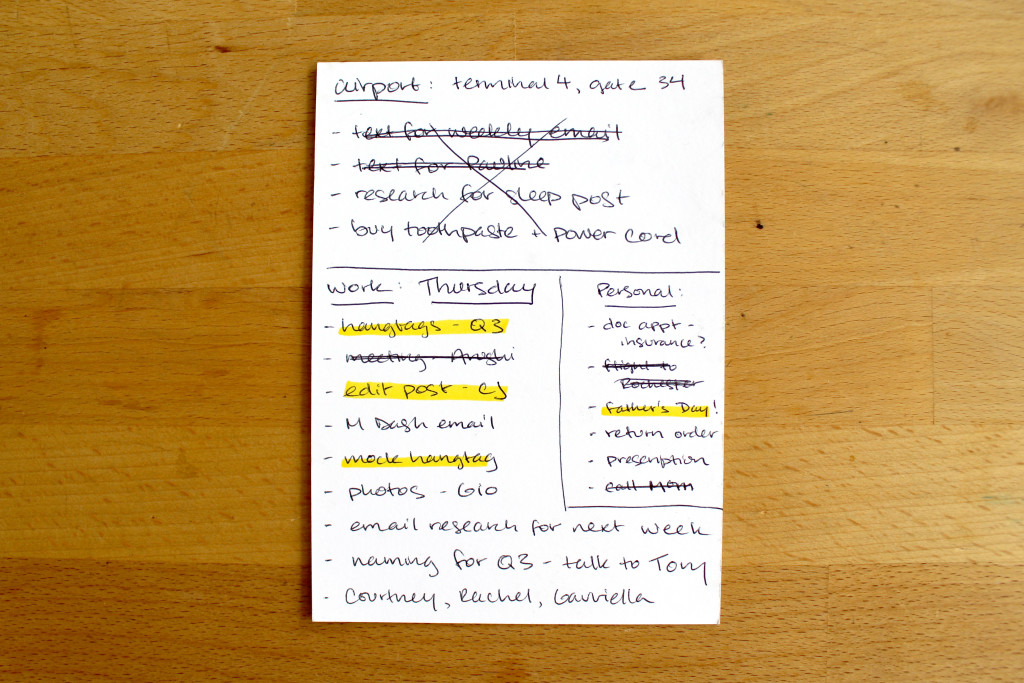 airport: terminal 4, gate 34
- text for weekly email
- text for Pauline
- research for sleep post
- buy toothpaste + power cord
work: Thursday
- hangtags - Q3
- meeting - Anushi
- edit post - CJ
- M Dash email
- mock hangtag
- photos - Gio
Personal:
- doc appt -
insurance?
- flight to
Rochester
- Father's Day!
- return order
- prescription
- call Mom
- email research for next week
- naming for Q3 - talk to Tory
- Courtney, Rachel, Gavriella